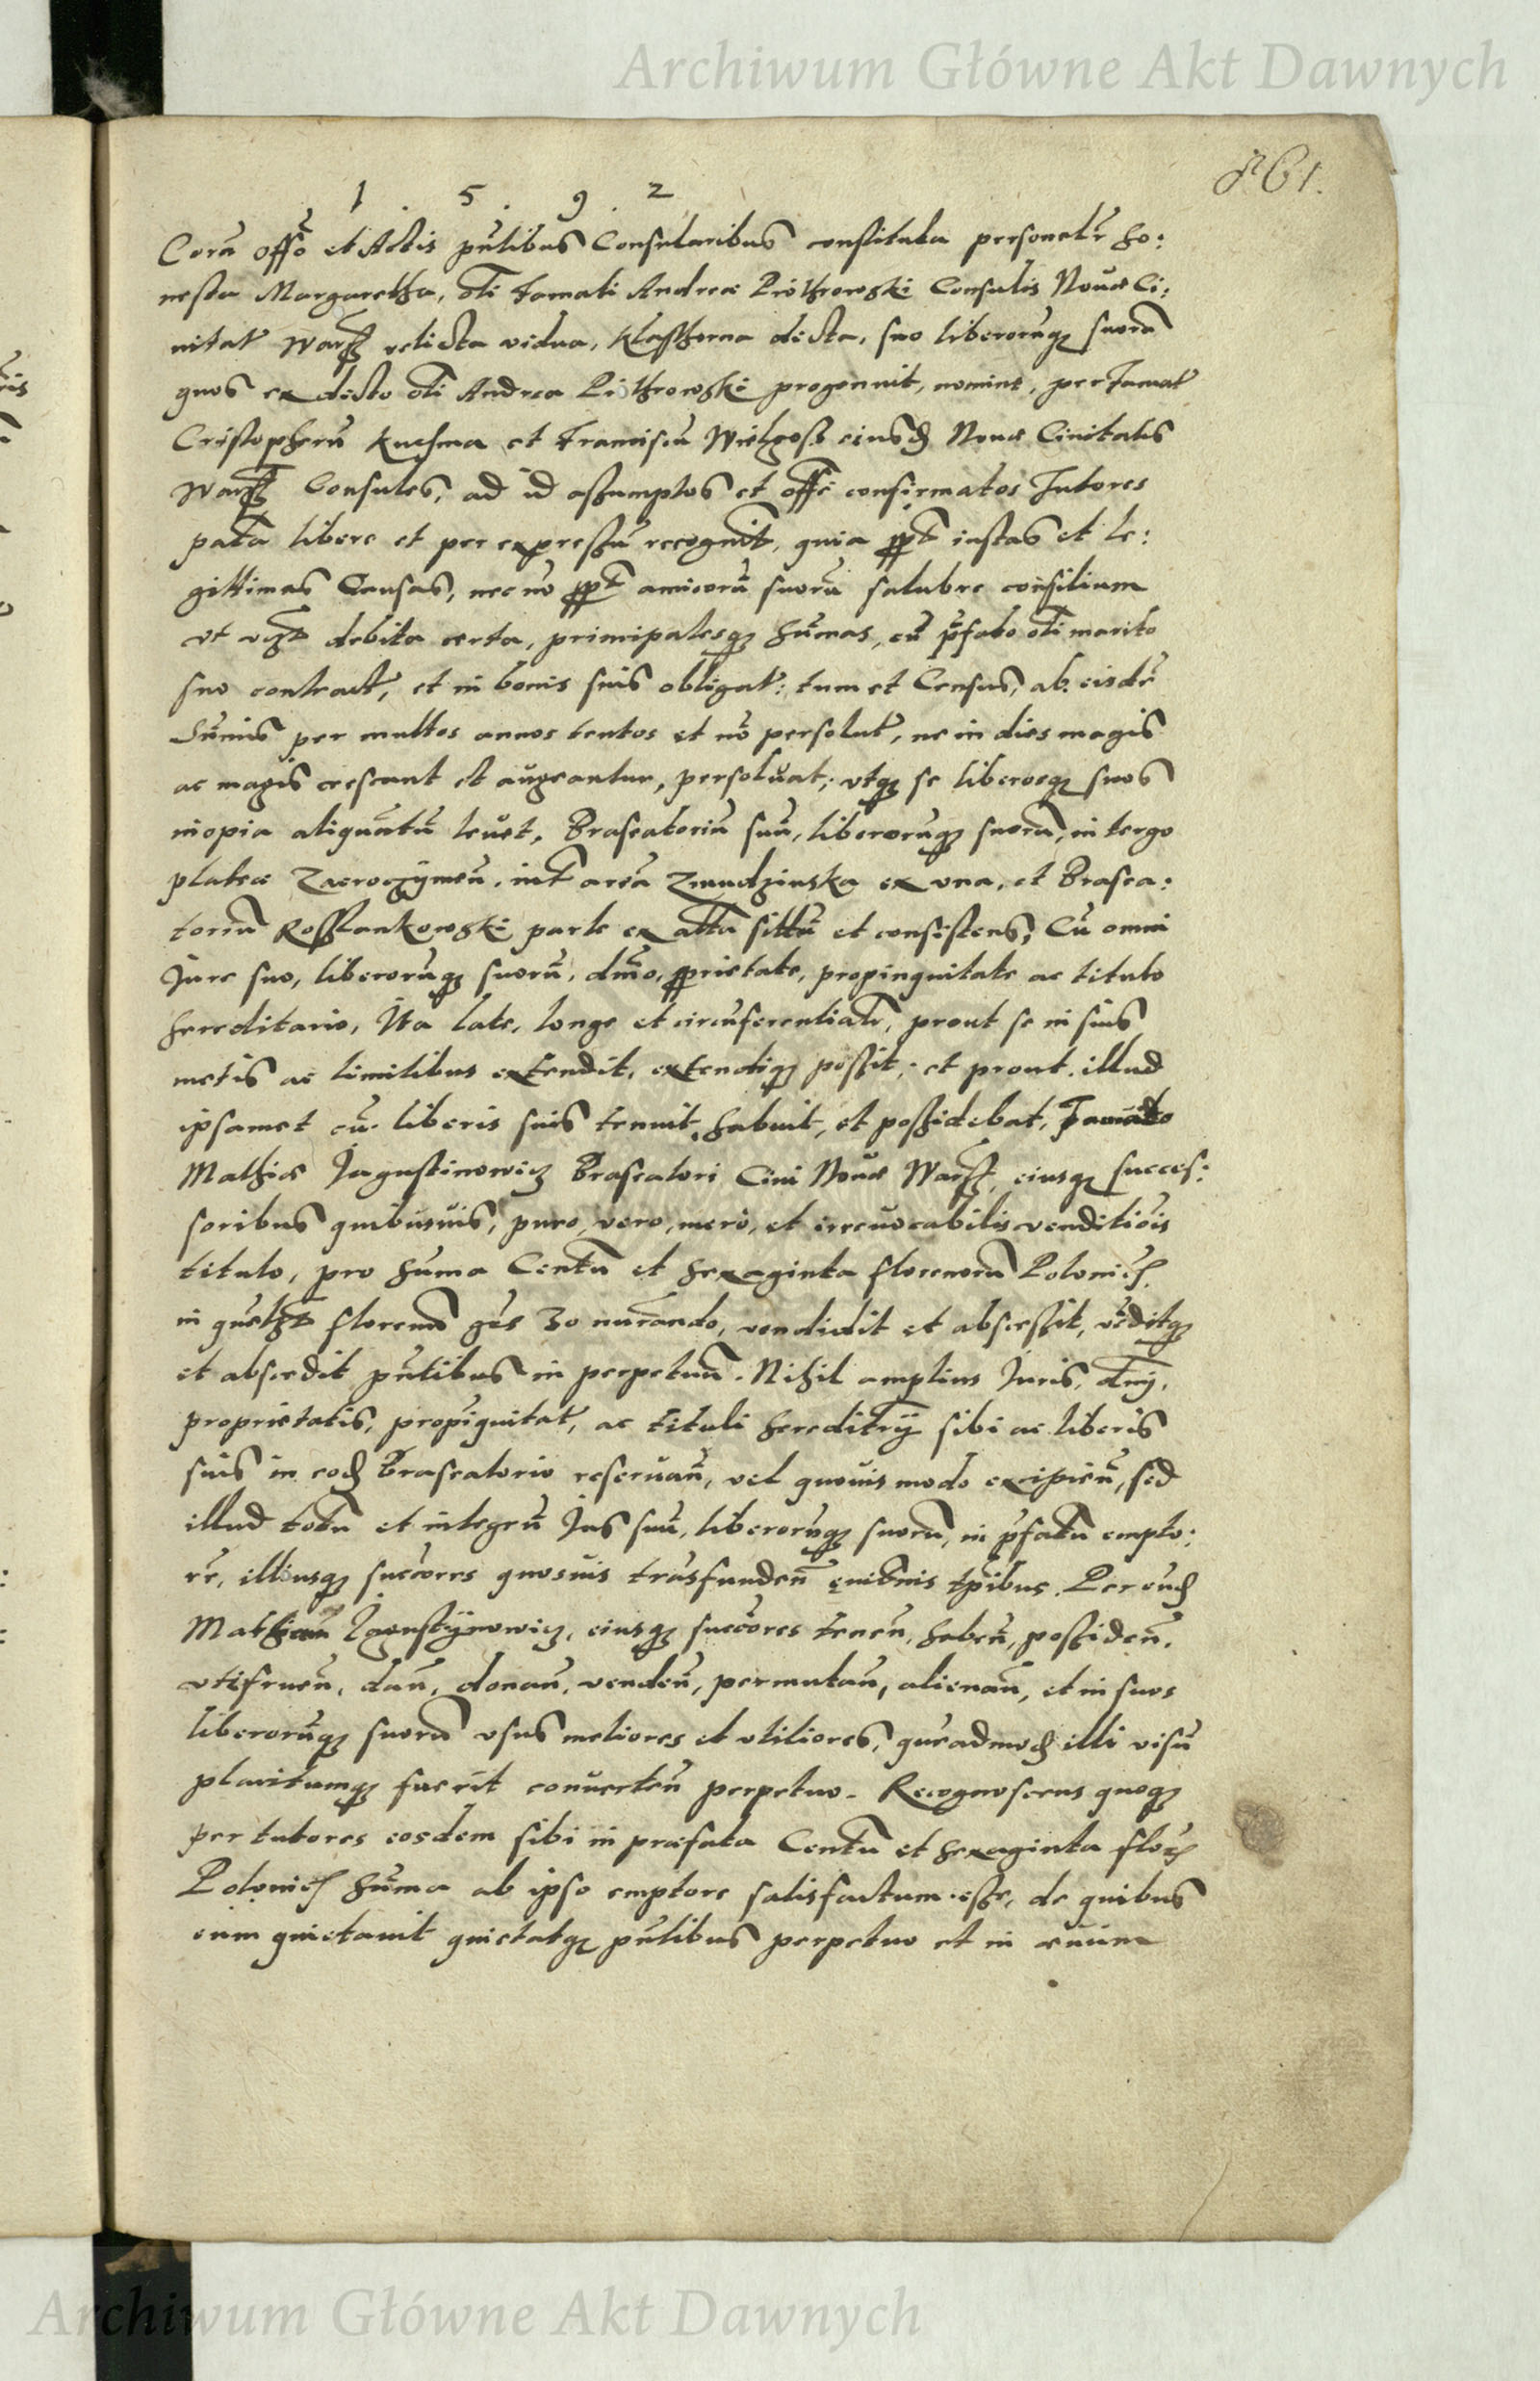 Archiwum Główne Akt Dawnych
1 . 5 . 9 . 2
Corā offō et Actis pn̄tibus Consularibus constituta personalr̄ ho:
nesta Margaretha, oti famati Andreæ Piothrowski Consulis Nouæ Ci:
uitat Wars relicta vidua, dicta, suo liberorūq suorū
quos ex dicto oti Andrea Piothrowski progenuit, nomine, per famat
Cristopherū Kuchna et Franciscū Wielgosz eiusd Nouæ Ciuitatis
Wars Consules, ad id assumptos et offē confirmatos Tutores
libere et per expressū recognuit, quia ppt iustas et le:
gittimas Causas, nec nō ppt amicorū suorū salubre consilium
vt debita certa, principalesq sūmas, cū p̄fato oti marito
suo contract, et in bonis suis obligat: tum et Census, ab eisdē
sūmis per multos annos tentos et nō persolut, ne in dies magis
ac magis crescant et augeantur, persoluat; vtq se liberosq suos
inopia aliquantū leuet, Braseatoriū suū, liberorūq suorū, in tergo
plateæ Zacroczÿmen. int areā Zmudzinska ex vna, et Brasea:
toriū Rosslankowski parte ex altā sittū et consistens, Cū omni
Jure suo, liberorūq suorū, dn̄io, pprietate, propinquitate ac titulo
hereditario, Ita late, longe et circūferentialr, prout se in suis
metis ac limitibus extendit, extendiq possit, et prout illud
ipsamet cū liberis suis tenuit, habuit, et possidebat, Famato
Mathiæ Jagustinowicz Braseatori Ciui Nouæ Wars, eiusq succes:
soribus quibusuis, puro, vero, mero, et irreuocabilis venditiōis
titulo, pro sūma Centū et sexaginta florenorū Polonics
in quelibet florenū 30 numerando, vendidit et abscessit, vēditq
et abscedit pn̄tibus in perpetuū. Nihil amplius Juris, dn̄ij,
proprietatis, propīquitat, ac tituli hereditrij sibi ac liberis
suis in eod Braseatorio reseruan̄, vel quouis modo excipien̄, sed
illud totū et integrū Jus suū, liberorūq suorū, in p̄fatū empto:
rē, illiusq succores quosuis trāsfunden̄ euiternis tp̄ibus. Per eud
Mathiam Jagustÿnowicz, eiusq succores tenen̄, haben̄, possiden̄,
vtifruen̄, dan̄, donan̄, venden̄, permutan̄, alienan̄, et in suos
liberorūq suorū vsus meliores et vtiliores, quēadmod illi visū
placitumq fuerit conuerten̄ perpetuo. Recognoscens quoq
per tutores eosdem sibi in præfata Centū et sexaginta flors
Polonics sūma ab ipso emptore satisfactum esse, de quibus
eum quietauit quietatq pn̄tibus perpetuo et in æuum
Archiwum Główne Akt Dawnych